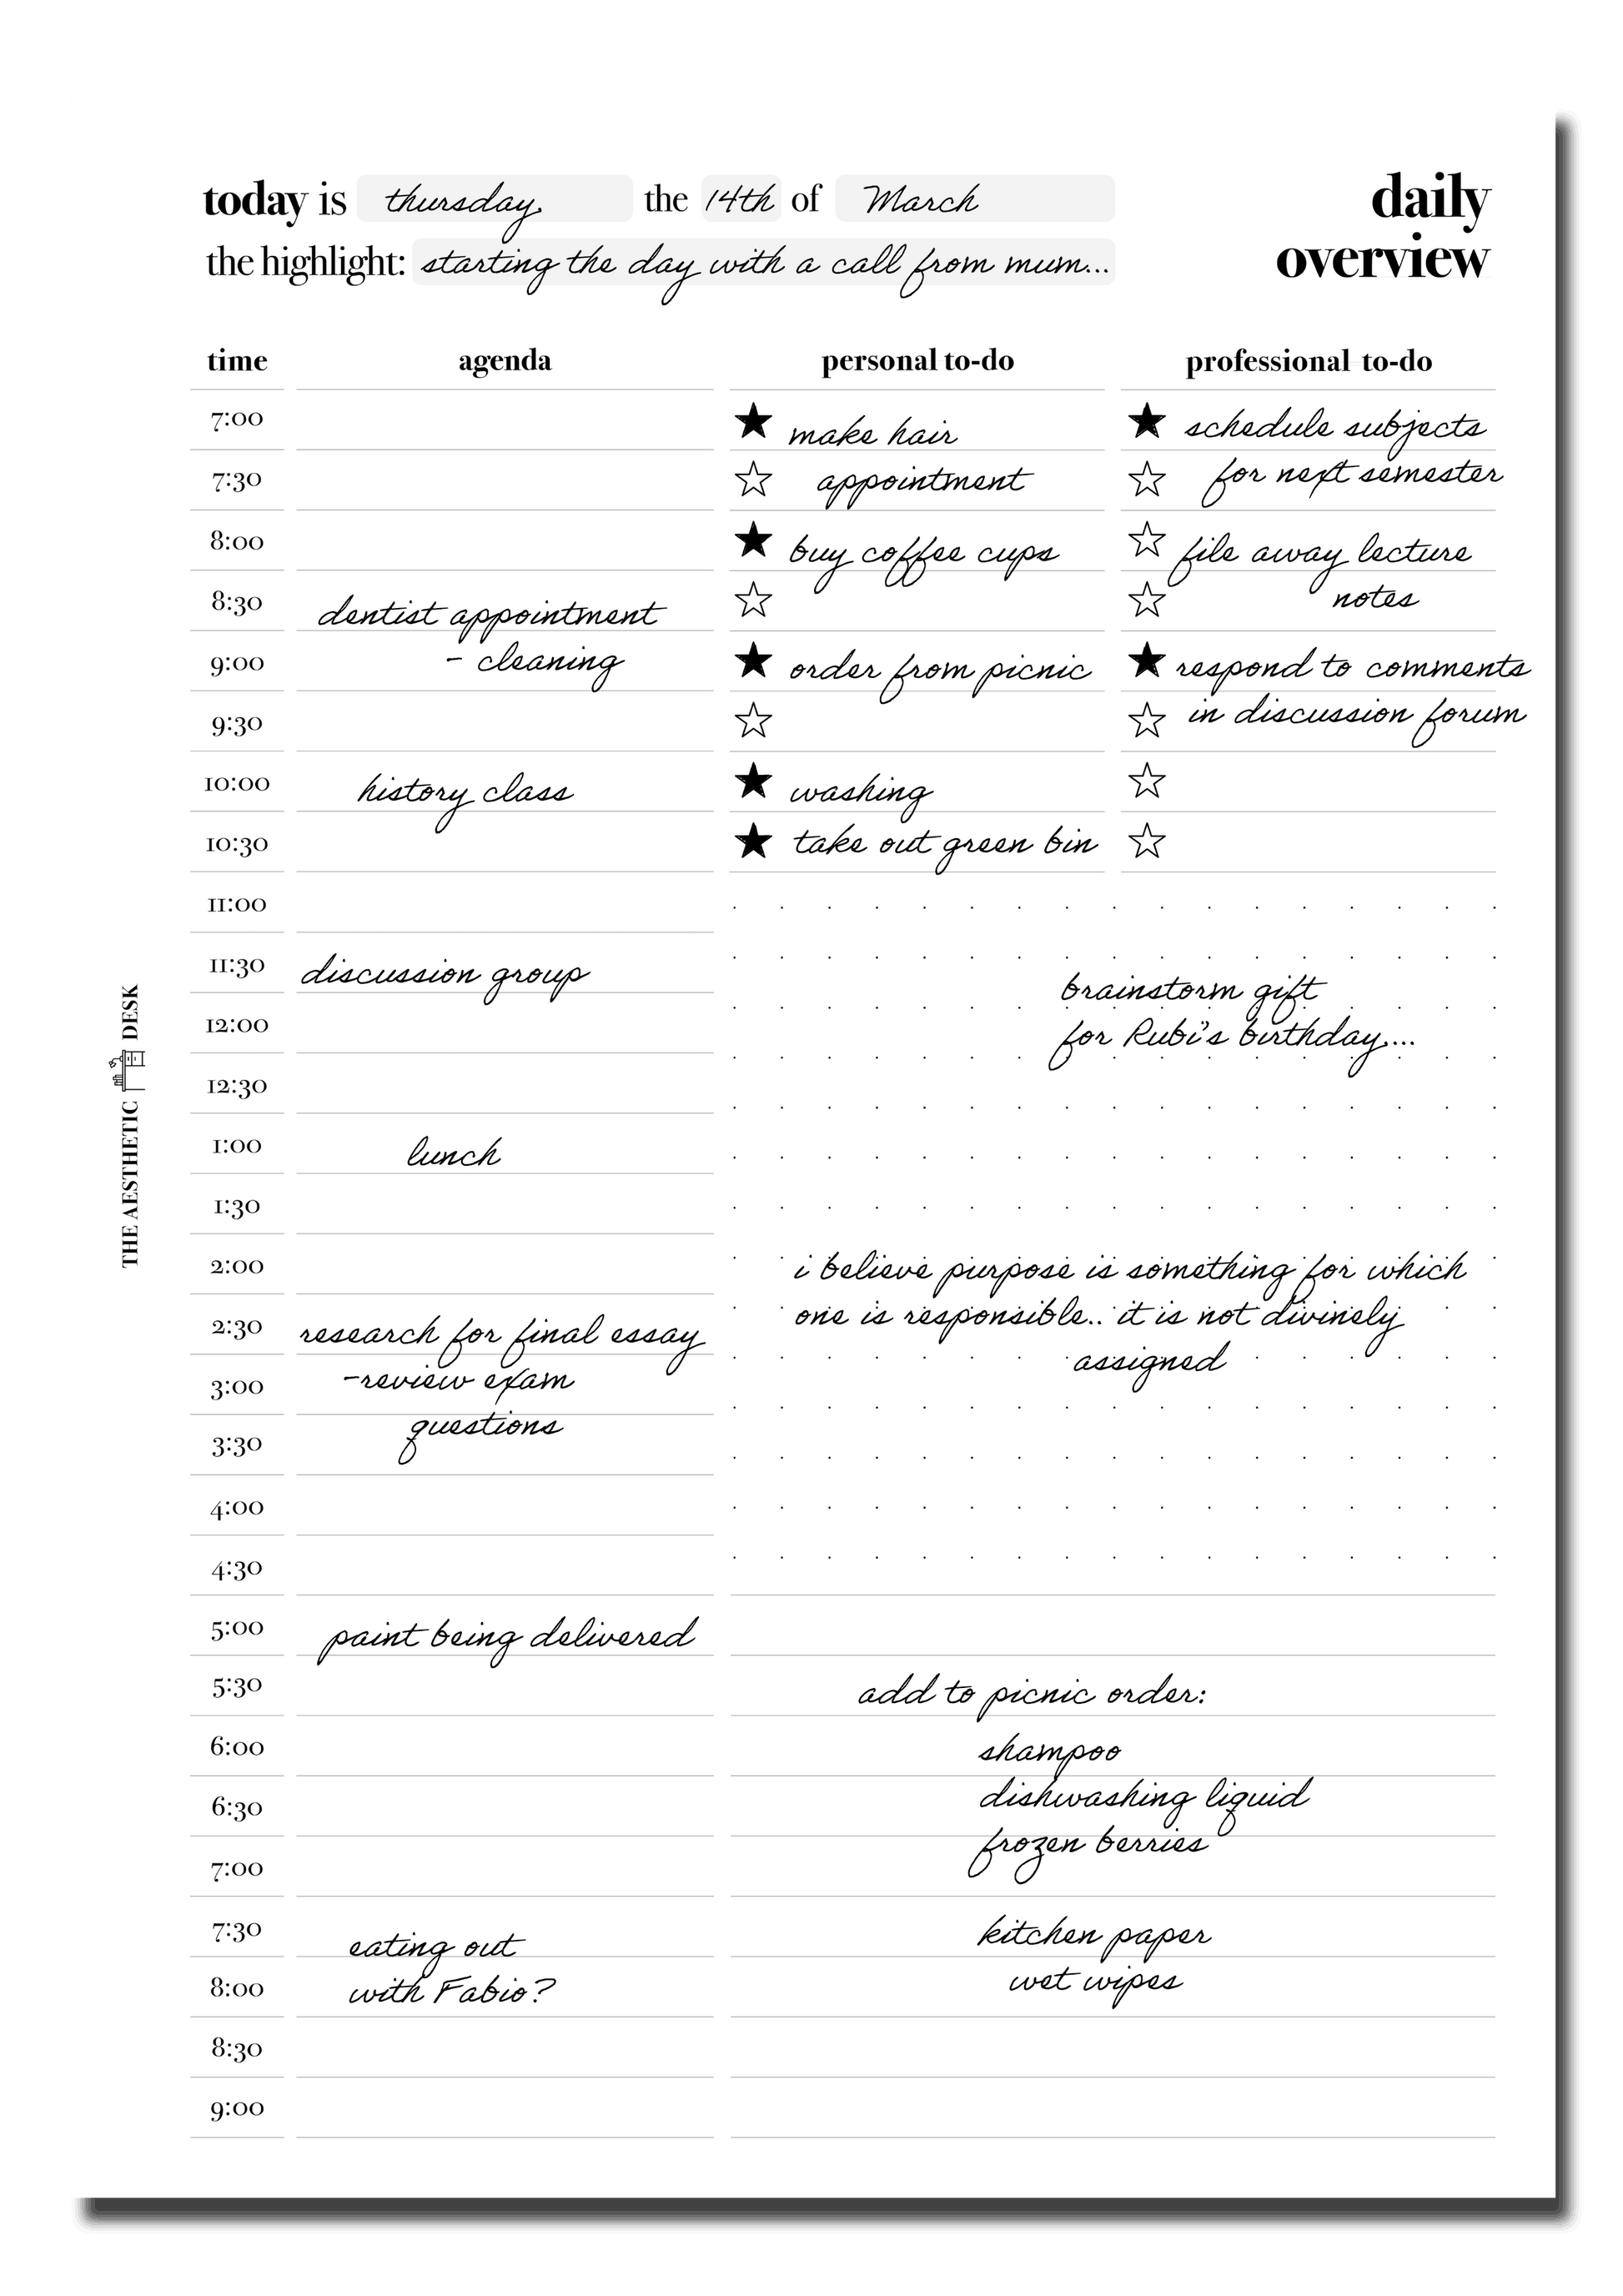 today is thursday the 14th of March
the highlight: starting the day with a call from mum...
daily
overview
time agenda personal to-do professional to-do
7:00 make hair schedule subjects
7:30 appointment for next semester
8:00 buy coffee cups file away lecture
8:30 dentist appointment notes
9:00 - cleaning order from picnic respond to comments
9:30 in discussion forum
10:00 history class washing
10:30 take out green bin
11:00
11:30 discussion group
brainstorm gift
12:00
for Rubi's birthday...
12:30
1:00 lunch
1:30
2:00 i believe purpose is something for which
one is responsible.. it is not divinely
2:30 research for final essay
assigned
3:00 -review exam
questions
3:30
4:00
4:30
5:00 paint being delivered
5:30 add to picnic order:
6:00 shampoo
6:30 dishwashing liquid
frozen berries
7:00
7:30 eating out kitchen paper
8:00 with Fabio? wet wipes
8:30
9:00
THE AESTHETIC DESK